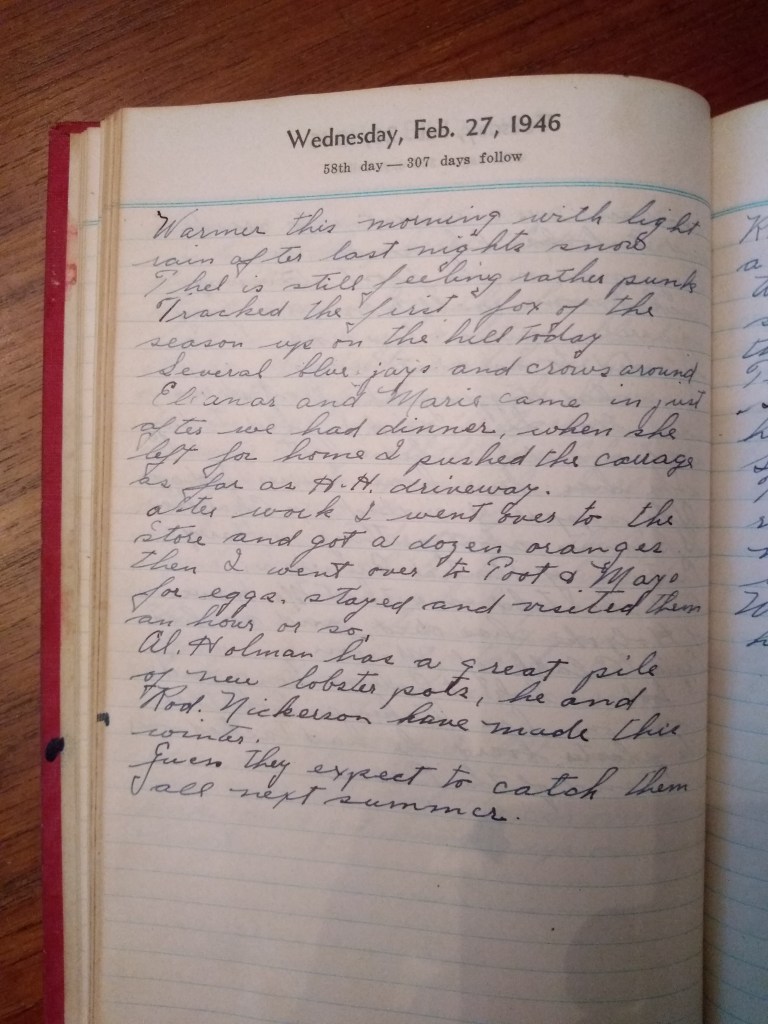 Wednesday, Feb. 27, 1946
58th day — 307 days follow
Warmer this morning with light
rain after last nights snow
Thel is still feeling rather punk
Tracked the first fox of the
season up on the hill today
Several blue jays and crows around
Elianar and Marie came in just
after we had dinner, when she
left for home I pushed the carrage
as far as H.H. driveway.
after work I went over to the
store and got a dozen oranges
then I went over to Poot & Mayo
for eggs. stayed and visited them
an hour or so.
Al. Holman has a great pile
of new lobster pots, he and
Rod. Nickerson have made this
winter.
Guess they expect to catch them
all next summer.